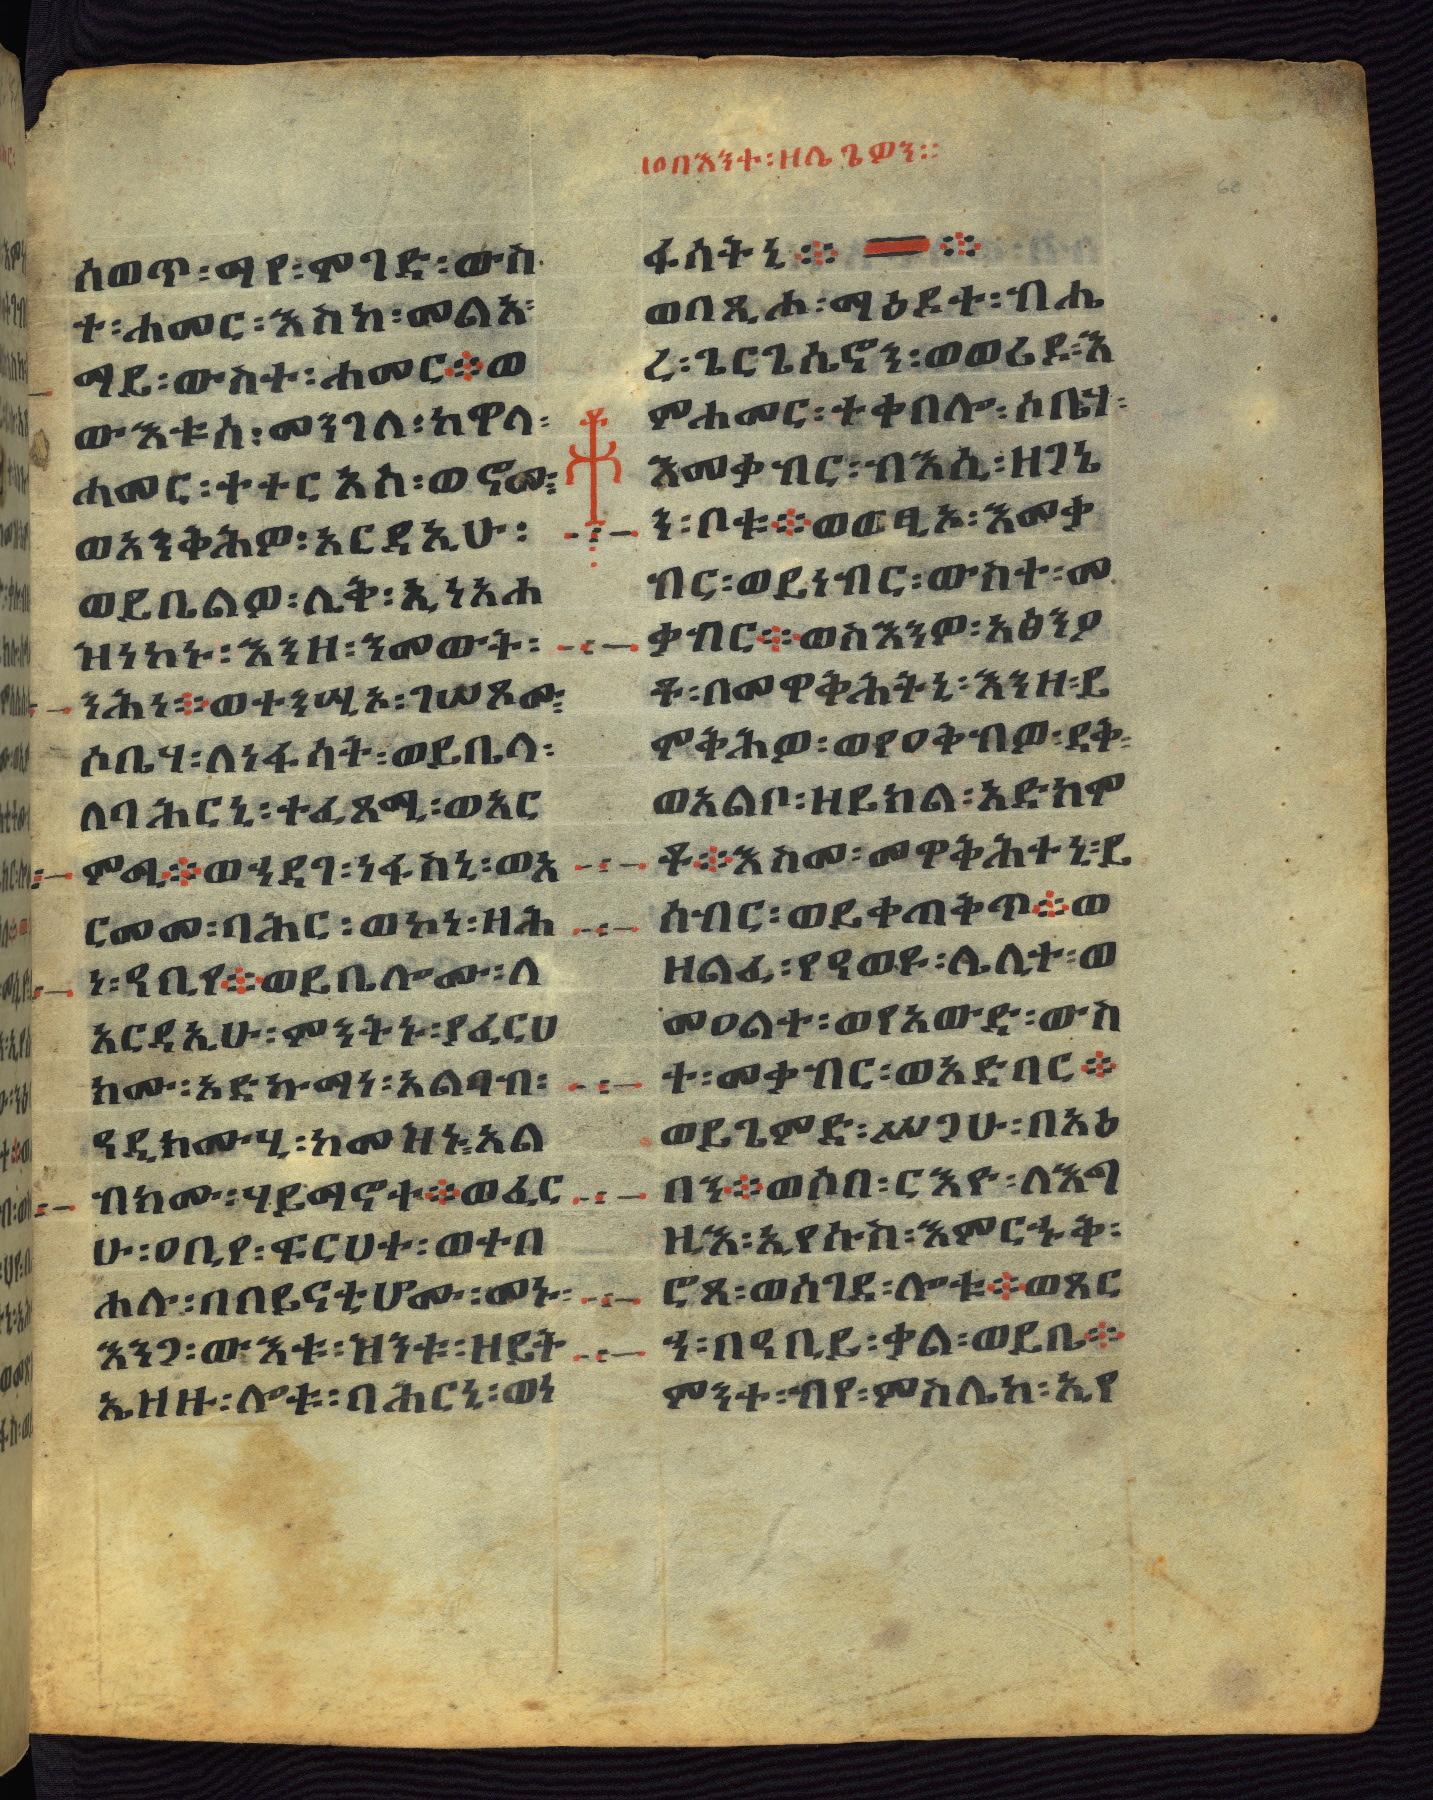 ፲፩በእንተ፡ዘሌጌዎን።
ሰወጥ፡ማየ፡ሞገድ፡ውስ
ተ፡ሐመር፡እስከ፡መልአ፡
ማይ፡ውስተ፡ሐመር፨ወ
ውእቱሰ፡መንገለ፡ከዋላ፡
ሐመር፡ተተርአሰ፡ወኖመ፡
ወአንቅሕዎ፡አርዳኢሁ፡
ወይቤልዎ፡ሊቅ፡ኢነአሐ
ዝነከኑ፡እንዘ፡ንመውት፡
ንሕነ፨ወተንሢኦ፡ገሠጾሙ፡
ሶቤሃ፡ለነፋሳት፡ወይቤላ፡
ለባሕርኒ፡ተፈጸሚ፡ወአር
ምሚ፨ወኀደገ፡ነፋስኒ፡ወአ
ርመመ፡ባሕር፡ወኮነ፡ዘሕ
ነ፡ዓቢየ፨ወይቤሎሙ፡ለ
አርዳኢሁ፡ምንትኑ፡ያፈርሀ
ክሙ፡አድኩማነ፡አልባብ፡
ዓዲክሙሂ፡ከመዝኑ፡አል
ብክሙ፡ሃይማኖተ፨ወፈር
ሁ፡ዐቢየ፡ፍርሀተ፡ወተበ
ሐሉ፡በበይናቲሆሙ፡መኑ፡
እንጋ፡ውእቱ፡ዝንቱ፡ዘይት
ኤዘዙ፡ሎቱ፡ባሕርኒ፡ወነ
ፋሳትኒ፨ ፨
ወበጺሐ፡ማዕዶተ፡ብሔ
ረ፡ጌርጌሴኖን፡ወወሪዶ፡እ
ምሐመር፡ተቀበሎ፡ሶቤሃ፡
እመቃብር፡ብእሲ፡ዘጋኔ
ን፡ቦቱ፨ወወፂኦ፡እመቃ
ብር፡ወይነብር፡ውስተ፡መ
ቃብር፨ወስእንዎ፡አፅንዖ
ቶ፡በመዋቅሕትኒ፡እንዘ፡ይ
ሞቅሕዎ፡ወየዐቅብዎ፡ደቅ፡
ወአልቦ፡ዘይክል፡አድክሞ
ቶ፨እስመ፡መዋቅሕተኒ፡ይ
ሰብር፡ወይቀጠቅጥ፨ወ
ዘልፈ፡የዓወዩ፡ሌሊተ፡ወ
መዐልተ፡ወየአውድ፡ውስ
ተ፡መቃብር፡ወአድባር፨
ወይጌምድ፡ሥጋሁ፡በአዕ
በን፨ወሶበ፡ርእዮ፡ለእግ
ዚእ፡ኢየሱስ፡እምርኁቅ፡
ሮጸ፡ወሰገደ፡ሎቱ፨ወጸር
ኀ፡በዓቢይ፡ቃል፡ወይቤ፨
ምንተ፡ብየ፡ምስሌከ፡ኢየ